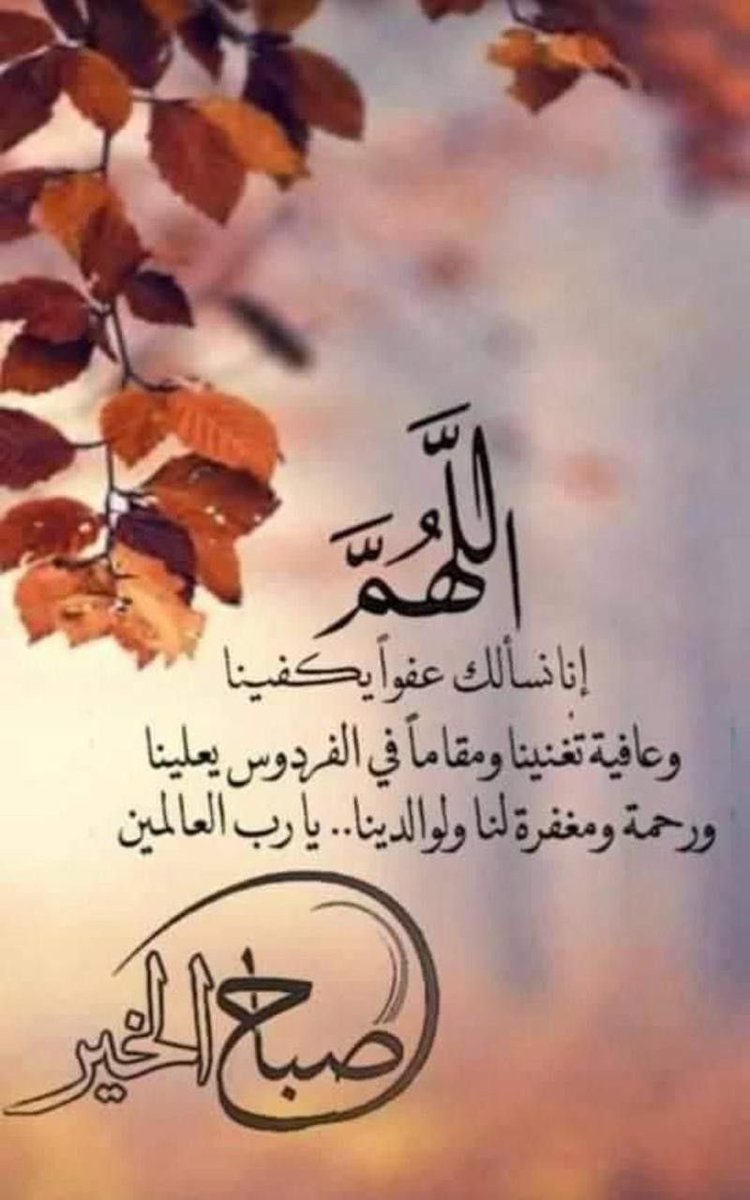 اللَّهُمَّ
إنا نسألك عفواً يكفينا
وعافية تُغنينا ومقاماً في الفردوس يعلينا
ورحمة ومغفرة لنا ولوالدينا.. يا رب العالمين
صباح الخير